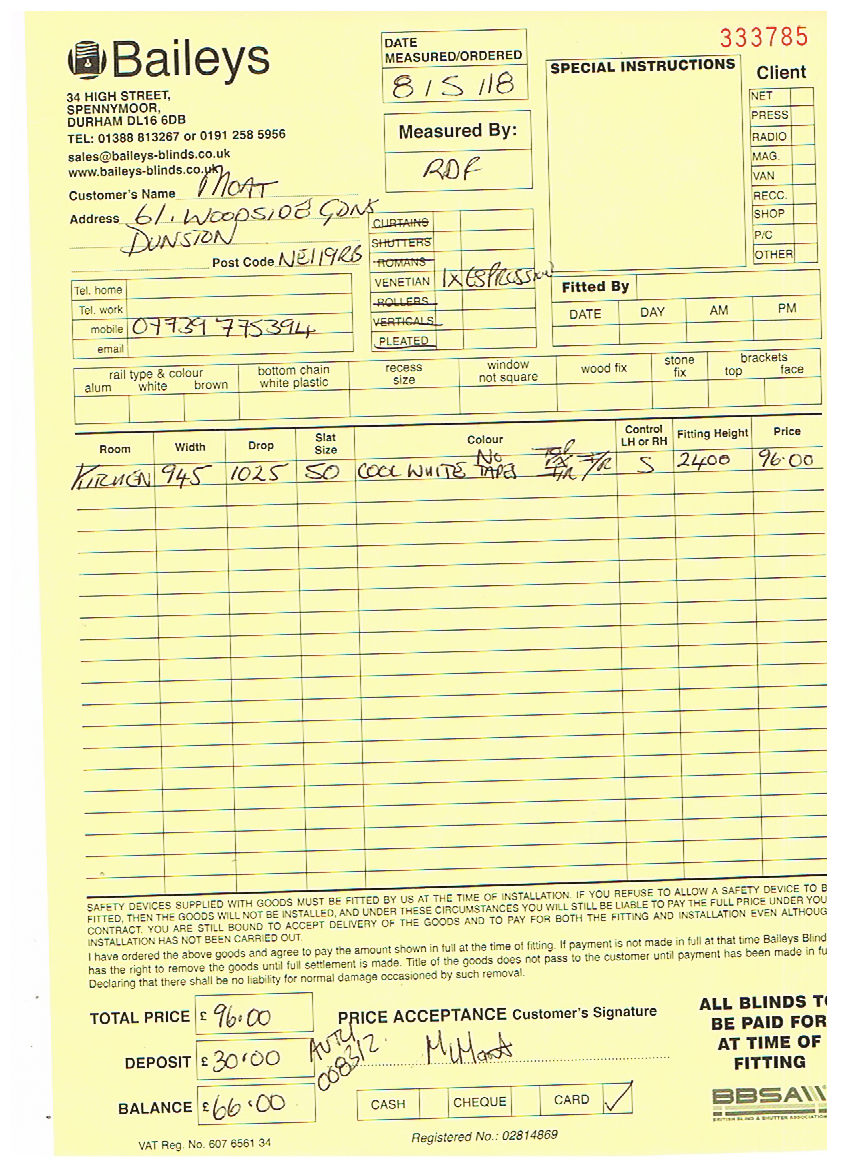 333785
Baileys
34 HIGH STREET,
SPENNYMOOR,
DURHAM DL16 6DB
TEL: 01388 813267 or 0191 258 5956
sales@baileys-blinds.co.uk
www.baileys-blinds.co.uk
DATE
MEASURED/ORDERED
8/5/18
Measured By:
RDF
SPECIAL INSTRUCTIONS
Client
NET
PRESS
RADIO
MAG.
VAN
RECC.
SHOP
P/C
OTHER
Customer's Name MOAT
Address 61. WOODSIDE GDNS
DUNSTON
Post Code NE119RB
Tel. home
Tel. work
mobile 07739 775394
email
CURTAINS
SHUTTERS
ROMANS
VENETIAN 1X ESPRESSION
ROLLERS
VERTICALS
PLEATED
Fitted By
DATE DAY AM PM
rail type & colour
alum white brown
bottom chain
white plastic
recess
size
window
not square
wood fix
stone
fix
brackets
top face
Room Width Drop Slat Size Colour Control LH or RH Fitting Height Price
KITCHEN 945 1025 50 COOL WHITE NO TAPES S 2400 96.00
SAFETY DEVICES SUPPLIED WITH GOODS MUST BE FITTED BY US AT THE TIME OF INSTALLATION. IF YOU REFUSE TO ALLOW A SAFETY DEVICE TO B
FITTED, THEN THE GOODS WILL NOT BE INSTALLED, AND UNDER THESE CIRCUMSTANCES YOU WILL STILL BE LIABLE TO PAY THE FULL PRICE UNDER YOU
CONTRACT. YOU ARE STILL BOUND TO ACCEPT DELIVERY OF THE GOODS AND TO PAY FOR BOTH THE FITTING AND INSTALLATION EVEN ALTHOUG
INSTALLATION HAS NOT BEEN CARRIED OUT.
I have ordered the above goods and agree to pay the amount shown in full at the time of fitting. If payment is not made in full at that time Baileys Blind
has the right to remove the goods until full settlement is made. Title of the goods does not pass to the customer until payment has been made in fu
Declaring that there shall be no liability for normal damage occasioned by such removal.
TOTAL PRICE £ 96.00
DEPOSIT £ 30.00
BALANCE £ 66.00
AUTH
008312
PRICE ACCEPTANCE Customer's Signature
M Moat
CASH CHEQUE CARD ✓
ALL BLINDS TO
BE PAID FOR
AT TIME OF
FITTING
BBSA
BRITISH BLIND & SHUTTER ASSOCIATION
VAT Reg. No. 607 6561 34
Registered No.: 02814869